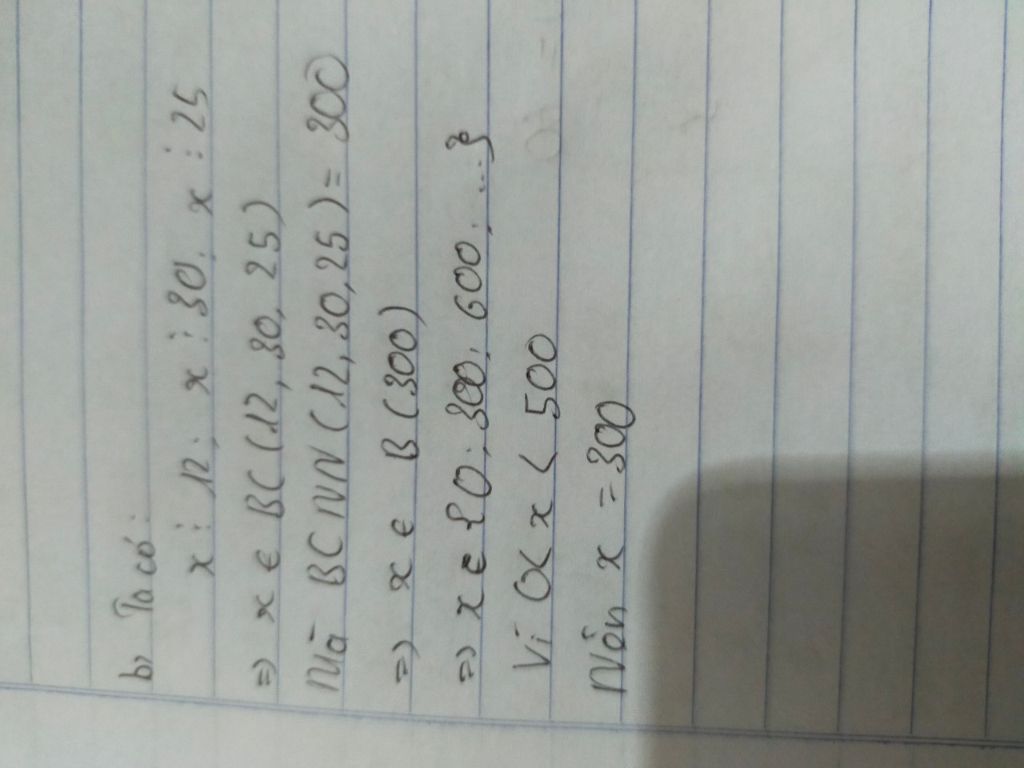 b, Ta có:
x ⋮ 12; x ⋮ 30; x ⋮ 25
=> x ∈ BC (12, 30, 25)
Mà BCNN (12, 30, 25) = 300
=> x ∈ B (300)
=> x ∈ {0; 300; 600; ...}
Vì 0 < x < 500
Nên x = 300